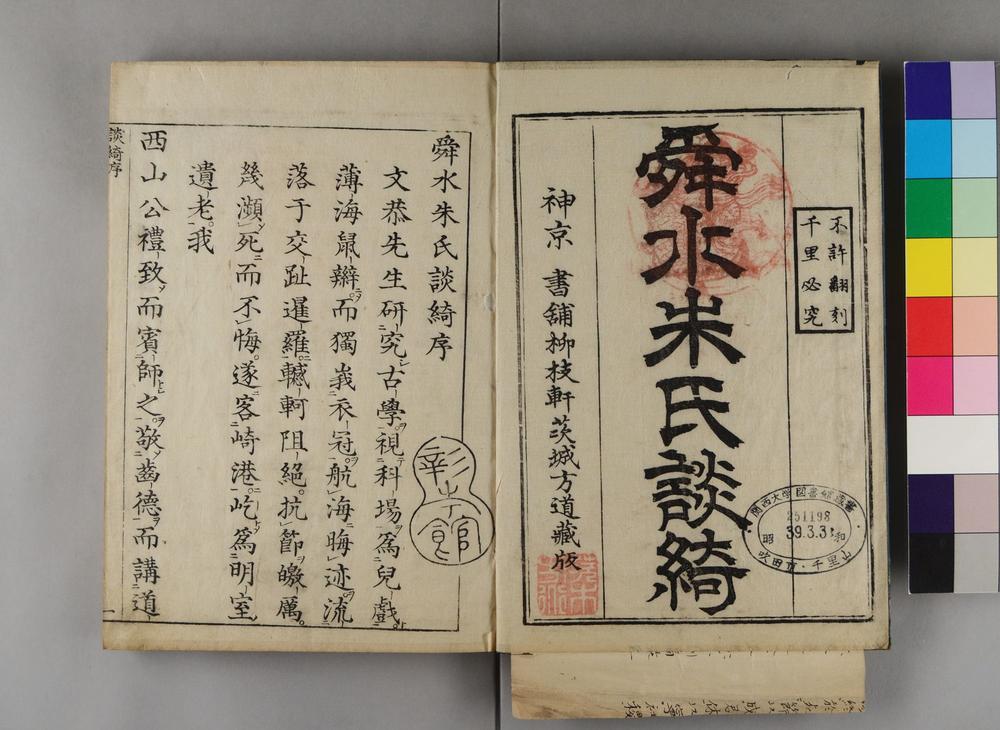 不許翻刻
千里必究
舜水朱氏談綺
神京 書舗柳枝軒茨城方道藏版
関西大学図書館蔵書
251198
昭和
39.3.31
吹田市・千里山
舜水朱氏談綺序
文恭先生研究古學視科場爲兒戲
薄海鼠辮而獨峩衣冠航海晦迹流
落于交趾暹羅轗軻阻絕抗節皦厲
幾瀕死而不悔遂客崎港屹爲明室
遺老我
西山公禮致而賓師之敬齒德而講道
談綺序
一
彰考館